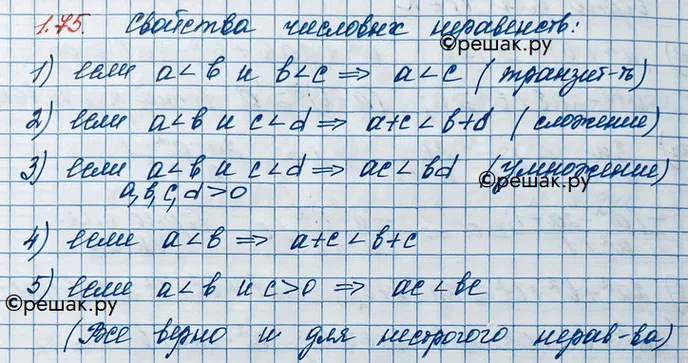 1.75. Свойства числовых неравенств:
©решак.ру
1) если a < b и b < c ⇒ a < c (транзит-ть)
2) если a < b и c < d ⇒ a+c < b+d (сложение)
3) если a < b и c < d ⇒ ac < bd (умножение)
a, b, c, d > 0
©решак.ру
4) если a < b ⇒ a+c < b+c
5) если a < b и c > 0 ⇒ ac < bc
©решак.ру
(Все верно и для нестрогого нерав-ва)